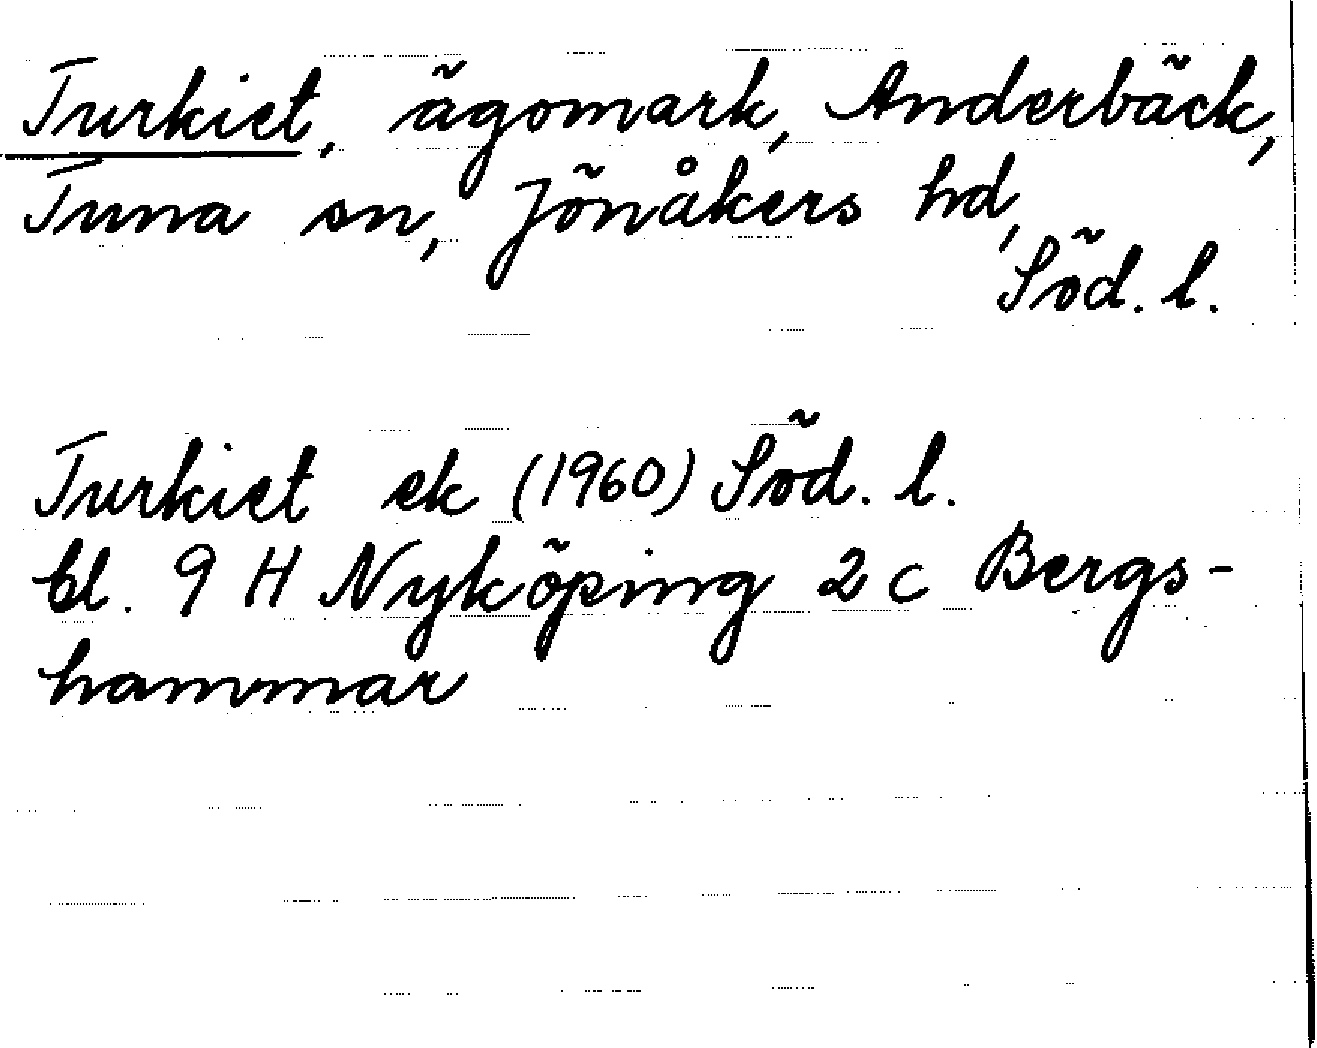 Turkiet, ägomark, Anderbäck,
Tuna sn, Jönåkers hd,
Söd. l.
Turkiet ek (1960) Söd. l.
bl. 9 H Nyköping 2 c Bergs-
hammar